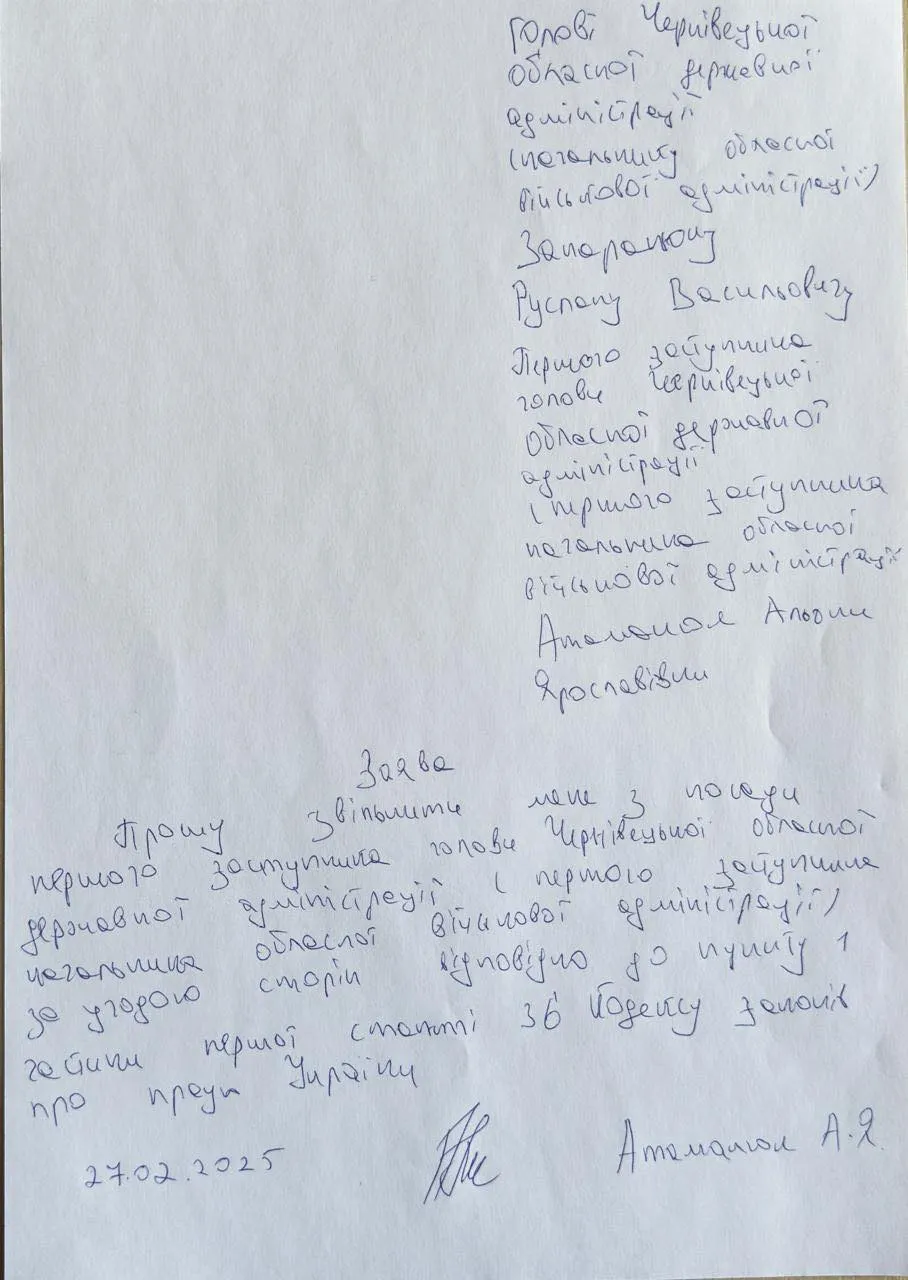 Голові Чернівецької
обласної державної
адміністрації
(начальнику обласної
військової адміністрації)
Запаранюку
Руслану Васильовичу
Першого заступника
голови Чернівецької
обласної державної
адміністрації
(першого заступника
начальника обласної
військової адміністрації
Атаманюк Альони
Ярославівни
Заява
Прошу звільнити мене з посади
першого заступника голови Чернівецької обласної
державної адміністрації (першого заступника
начальника обласної військової адміністрації)
за угодою сторін відповідно до пункту 1
частини першої статті 36 Кодексу законів
про працю України
27.02.2025 Атаманюк А.Я.